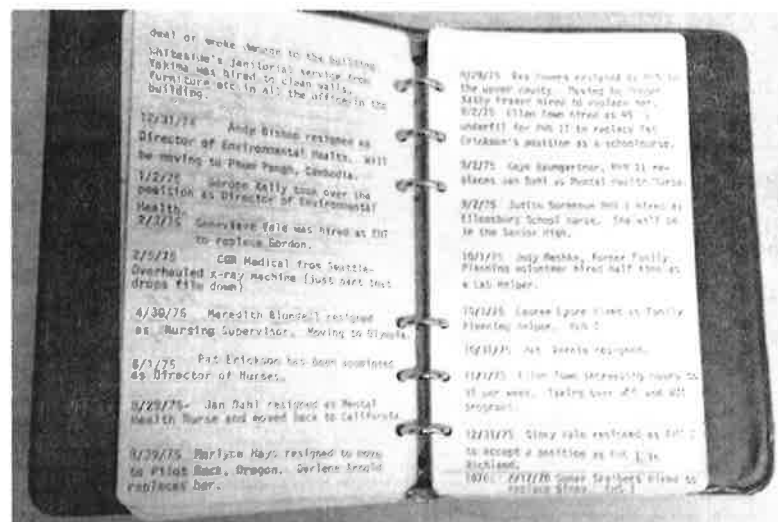 deal of smoke damage to the building.
Whiteside's janitorial service from
Yakima was hired to clean walls,
furniture etc in all the office in the
building.
12/31/74 Andy Bishop resigned as
Director of Environmental Health. Will
be moving to Phnom Pengh, Cambodia.
1/2/75 Gordon Kelly took over the
position as Director of Environmental
Health.
2/3/75 Genevieve Vale was hired at
to replace Gordon.
2/5/75 CGR Medical from Seattle-
Overhauled x-ray machine (just part that
drops film down)
4/30/75 Meredith Blundell resigned
as Nursing Supervisor. Moving to Olympia.
6/1/75 Pat Erickson has been appointed
as Director of Nurses.
8/29/75- Jan Dahl resigned as Mental
Health Nurse and moved back to California.
8/29/75 Marlyce Hays resigned to move
to Pilot Rock, Oregon. Darlene
replaces her.
resigned as PHN in
the upper county. Moving to
hired to replace her.
9/2/75 Ellen Town hired as
underfill for PHN II to replace Pat
Erickson's position as a schoolnurse.
9/2/75 Gaye Baumgartner, PHN II re-
places Jan Dahl as Mental Health Nurse.
9/2/75 Judith hired as
Ellensburg School nurse. She will be
in the Senior High.
10/1/75 Judy Meshko, former Family
Planning volunteer hired half time as
a Lab Helper.
Lauren hired as Family
Planning helper.
resigned.
Ellen Town increasing hours to
per week. Taking over
program.
12/31/75 Ginny Vale resigned as
to accept a position as in
Richland.
1976: hired to
replace Ginny.